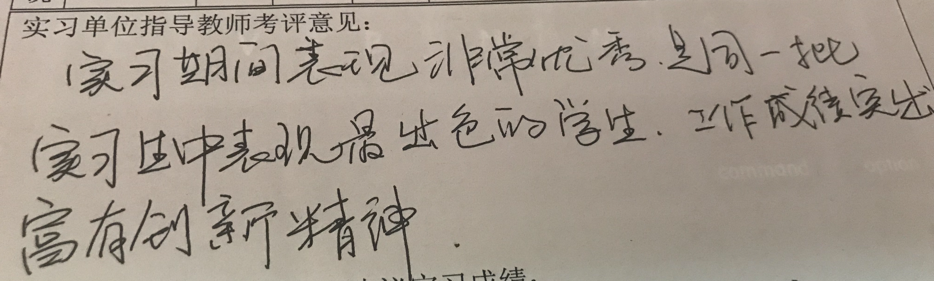 实习单位指导教师考评意见：
实习期间表现非常优秀.是同一批
实习生中表现最出色的学生.工作成绩突出
富有创新精神.
实习成绩:
command option